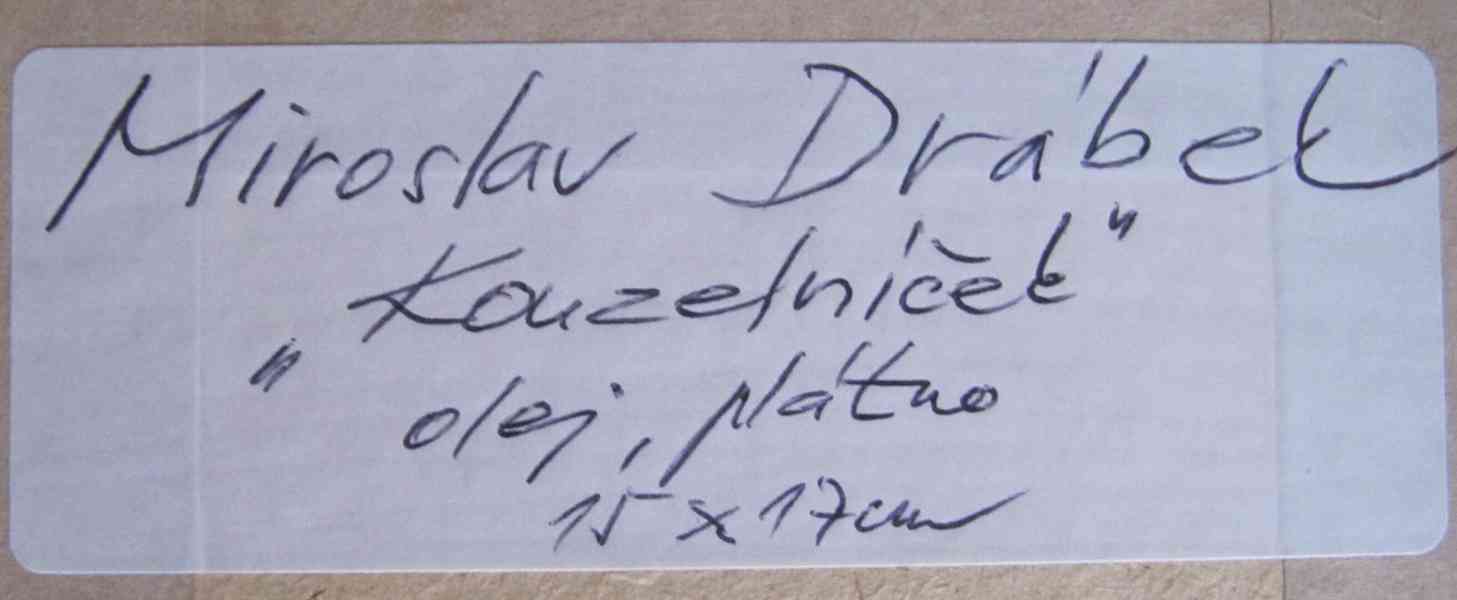 Miroslav Drábek
„Kouzelníček"
olej, plátno
15 x 17cm